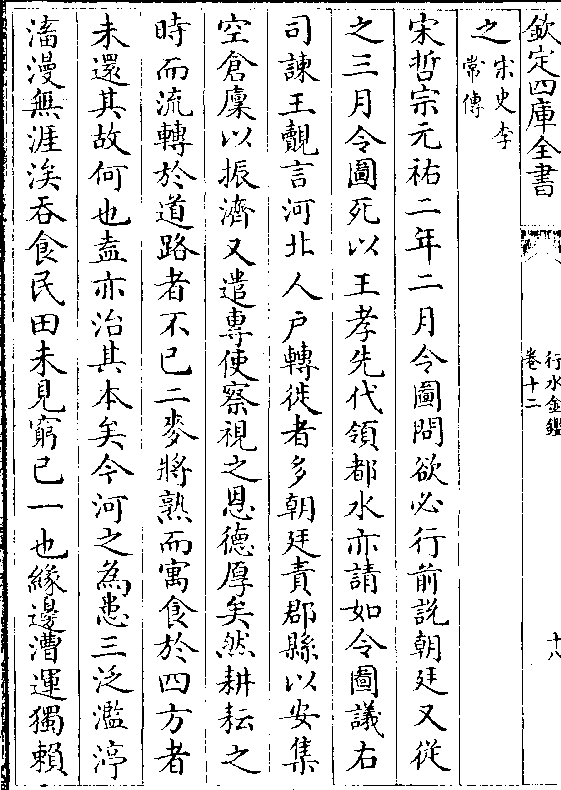 欽定四庫全書
行水金鑑
卷十二
十八
之宋史李常傳
宋哲宗元祐二年二月令圖問欲必行前說朝廷又從
之三月令圖死以王孝先代領都水亦請如令圖議右
司諫王覿言河北人户轉徙者多朝廷責郡縣以安集
空倉廩以振濟又遣專使察視之恩德厚矣然耕耘之
時而流轉於道路者不已二麥將熟而寓食於四方者
未還其故何也盍亦治其本矣今河之為患三泛濫渟
滀漫無涯涘吞食民田未見窮已一也緣邊漕運獨賴